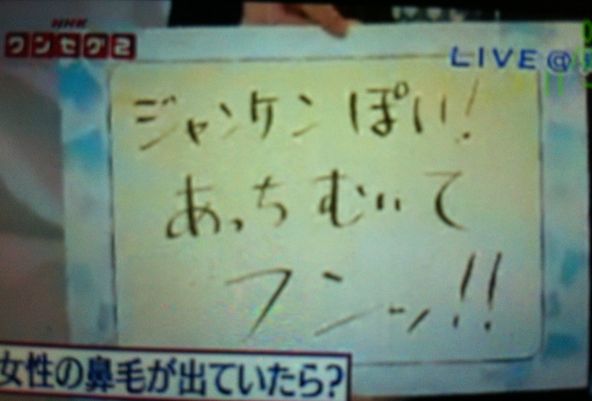 NHK
ワンセグ2
LIVE@
ジャンケンぽい!
あっちむいて
フンッ!!
女性の鼻毛が出ていたら?